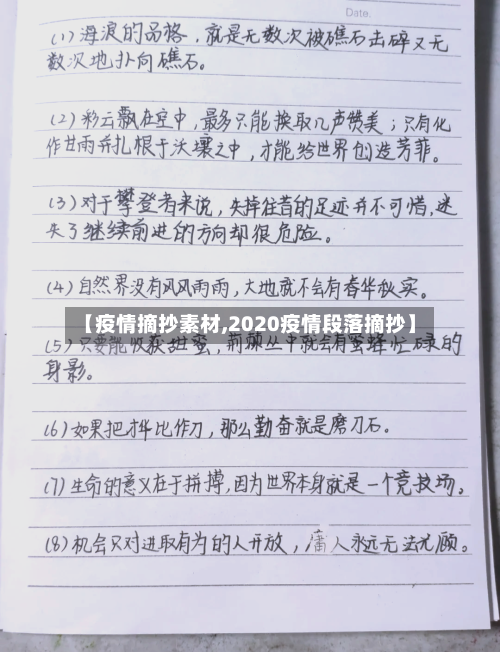 Date.
(1)海浪的品格，就是无数次被礁石击碎又无
数次地扑向礁石。
(2)彩云飘在空中，最多只能换取几声赞美；只有化
作甘雨并扎根于沃壤之中，才能给世界创造芳菲。
(3)对于攀登者来说，失掉往昔的足迹并不可惜，迷
失了继续前进的方向却很危险。
(4)自然界没有风风雨雨，大地就不会有春华秋实。
【疫情摘抄素材,2020疫情段落摘抄】
(5)只要能收获甜蜜，荆棘丛中就会有蜜蜂忙碌的
身影。
(6)如果把才华比作刀，那么勤奋就是磨刀石。
(7)生命的意义在于拼搏，因为世界本身就是一个竞技场。
(8)机会只对进取有为的人开放，庸人永远无法光顾。